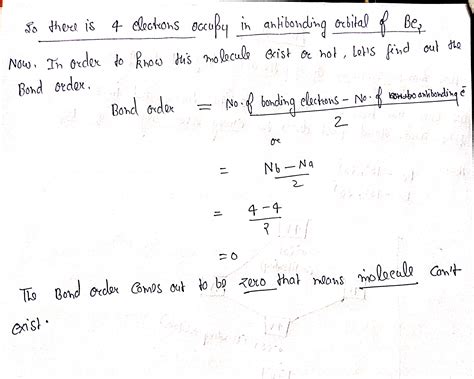 So there is 4 electrons occupy in antibonding orbital of Be2
Now. In order to know this molecule exist or not, let's find out the
Bond order.
Bond order = No. of bonding electrons – No. of antibonding e⁻
2
or
= Nb – Na
2
= 4 – 4
2
= 0
The Bond order comes out to be zero that means molecule can't
exist.